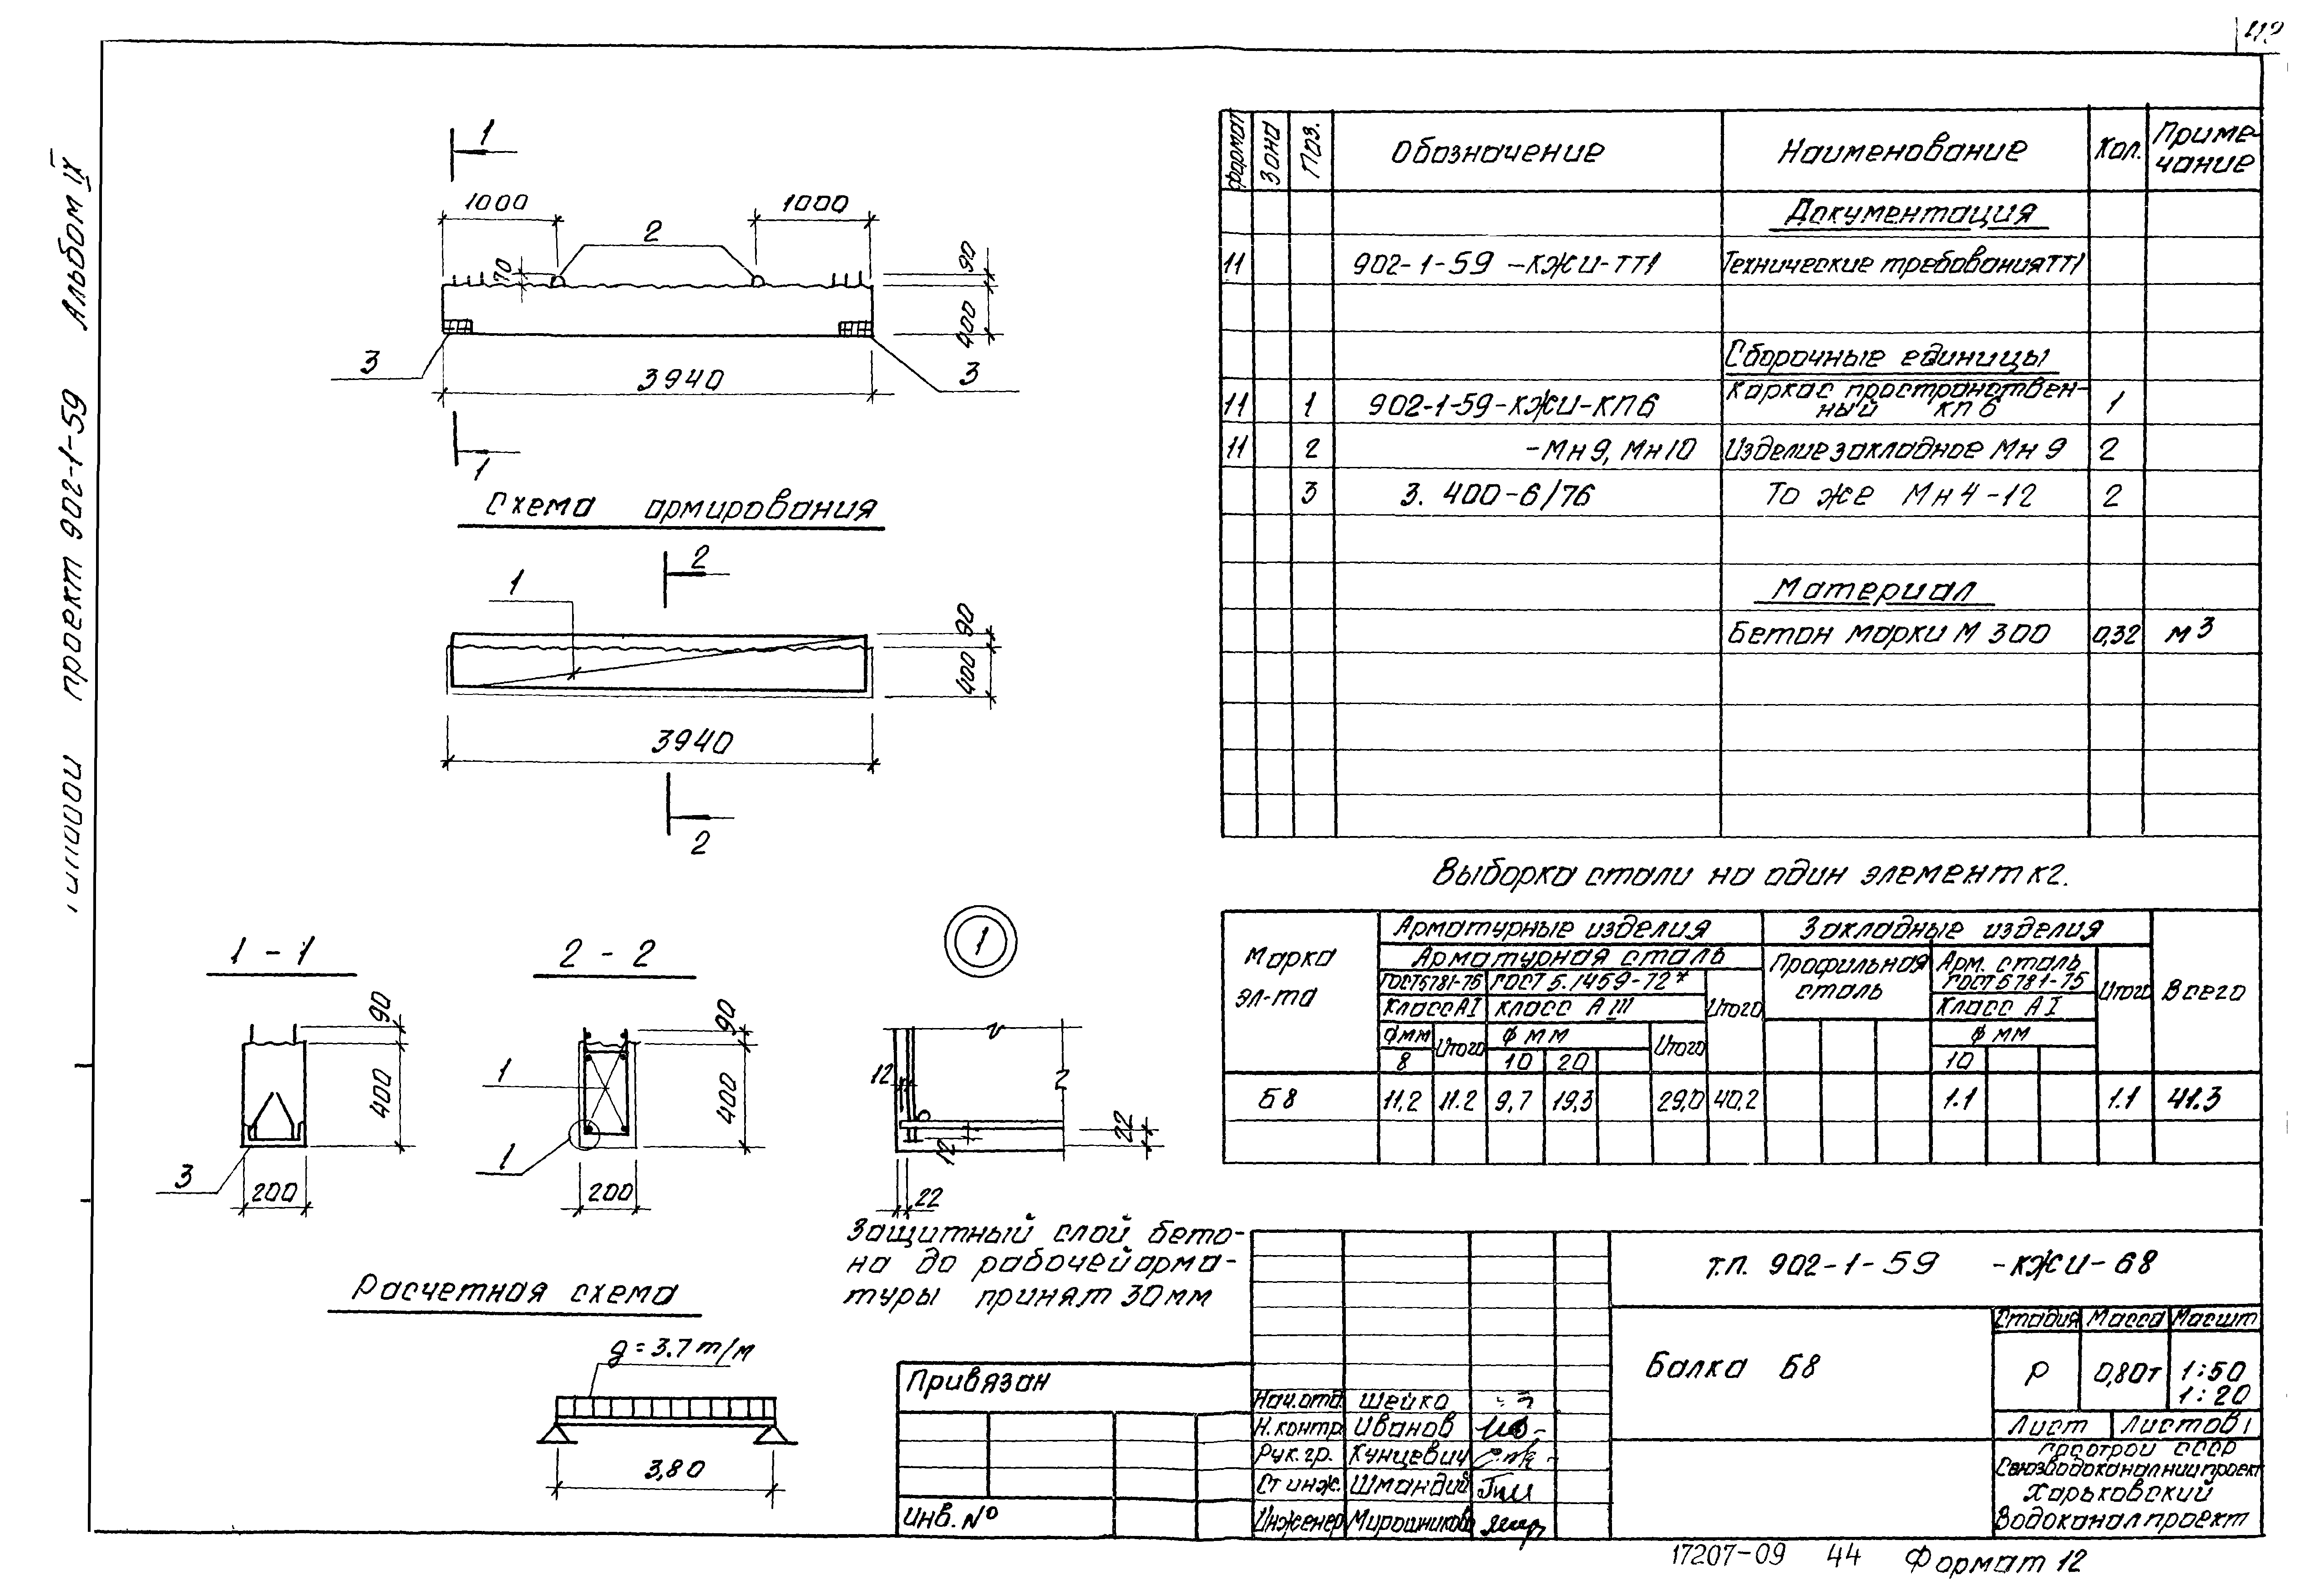 Альбом IX
проект 902-1-59
1
1000
1000
2
70
90
400
3
3
3940
1
Схема армирования
2
1
90
400
3940
2
1 - 1
2 - 2
1
90
400
3
200
90
400
1
1
200
12
12
22
22
Защитный слой бето-
на до рабочей арма-
туры принят 30мм
Расчетная схема
g = 3.7 т/м
3,80
Формат
Зона
Поз.
Обозначение
Наименование
Кол.
Приме-
чание
Документация
11 902-1-59 -КЖИ-ТТ1 Технические требования ТТ1
Сборочные единицы
11 1 902-1-59-КЖИ-КП6 Каркас пространствен-
ный КП6 1
11 2 -Мн9, Мн10 Изделие закладное Мн9 2
3 3.400-6/76 То же Мн4-12 2
Материал
Бетон марки М 300 0,32 м3
Выборка стали на один элемент кг.
Марка
эл-та
Арматурные изделия
Закладные изделия
Всего
Арматурная сталь
Профильная
сталь
Арм. сталь
ГОСТ5781-75
Итого
ГОСТ5781-75
ГОСТ 5.1459-72*
Итого
Класс АI
Класс АIII
Класс АI
Фмм
Итого
Ф мм
Итого
Ф мм
8
10
20
10
Б8 11,2 11.2 9,7 19,3 29,0 40,2 1.1 1.1 41.3
Т.П. 902-1-59 -КЖИ-Б8
Балка Б8
Стадия Масса Масшт
Р 0,80т 1:50
1:20
Лист Листов 1
Госстрой СССР
Союзводоканалниипроект
Харьковский
Водоканалпроект
Привязан
Инв. №
Нач.отд. Шейко
Н.контр. Иванов
Рук.гр. Кунцевич
Ст инж. Шмандий
Инженер Мирошников
17207-09 44 Формат 12